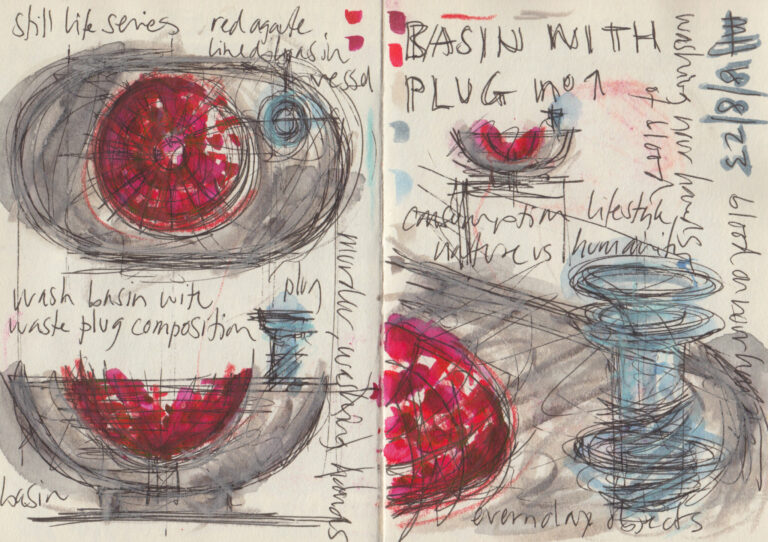 still life series
red agate
lined basin
vessel
wash basin with
waste plug composition
plug
murder, washing hands
basin
BASIN WITH
PLUG No 1
washing our hands
of blood
23/8/18
blood on our hands
consumption lifestyle
nature vs humanities
everyday objects